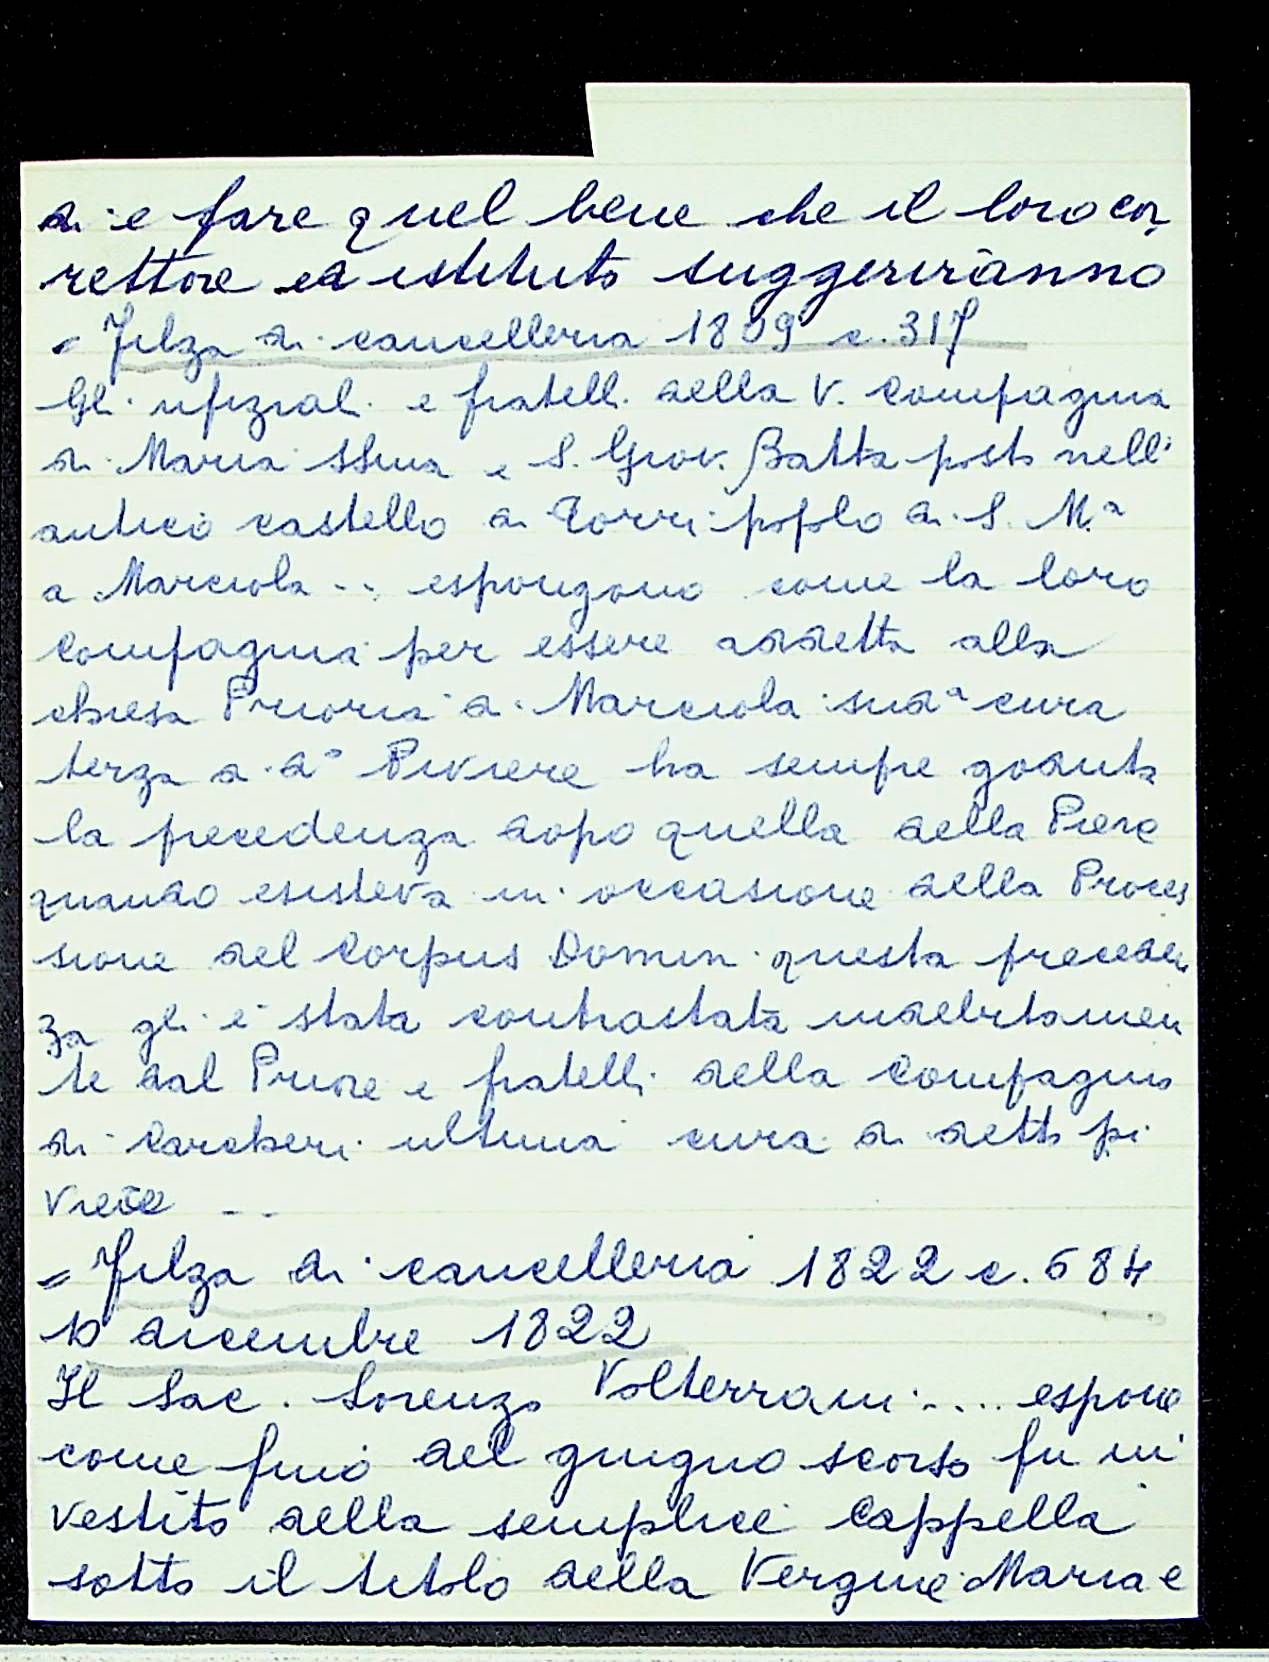 di e fare quel bene che il loro cor
rettore ed istituto suggeriranno
= Filza di cancelleria 1809 c. 317
Gli ufiziali e fratelli della V. Compagnia
di Maria SSma e S. Giov. Batta posta nell'
antico castello di Torri popolo di S. Mª
a Marciola .. espongono come la loro
Compagnia per essere addetta alla
chiesa Prioria di Marciola sudª cura
terza di dº Piviere ha sempre goduta
la precedenza dopo quella della Pieve
quando esisteva in occasione della Proces
sione del Corpus Domini questa preceden
za gli è stata contrastata indebitamen
te dal Priore e fratelli della Compagnia
di Carcheri ultima cura di detto pi
viere ..
= Filza di cancelleria 1822 c. 684
10 dicembre 1822
Il Sac. Lorenzo Volterrani .... espone
come fino del giugno scorso fu in
vestito della semplice Cappella
sotto il titolo della Vergine Maria e